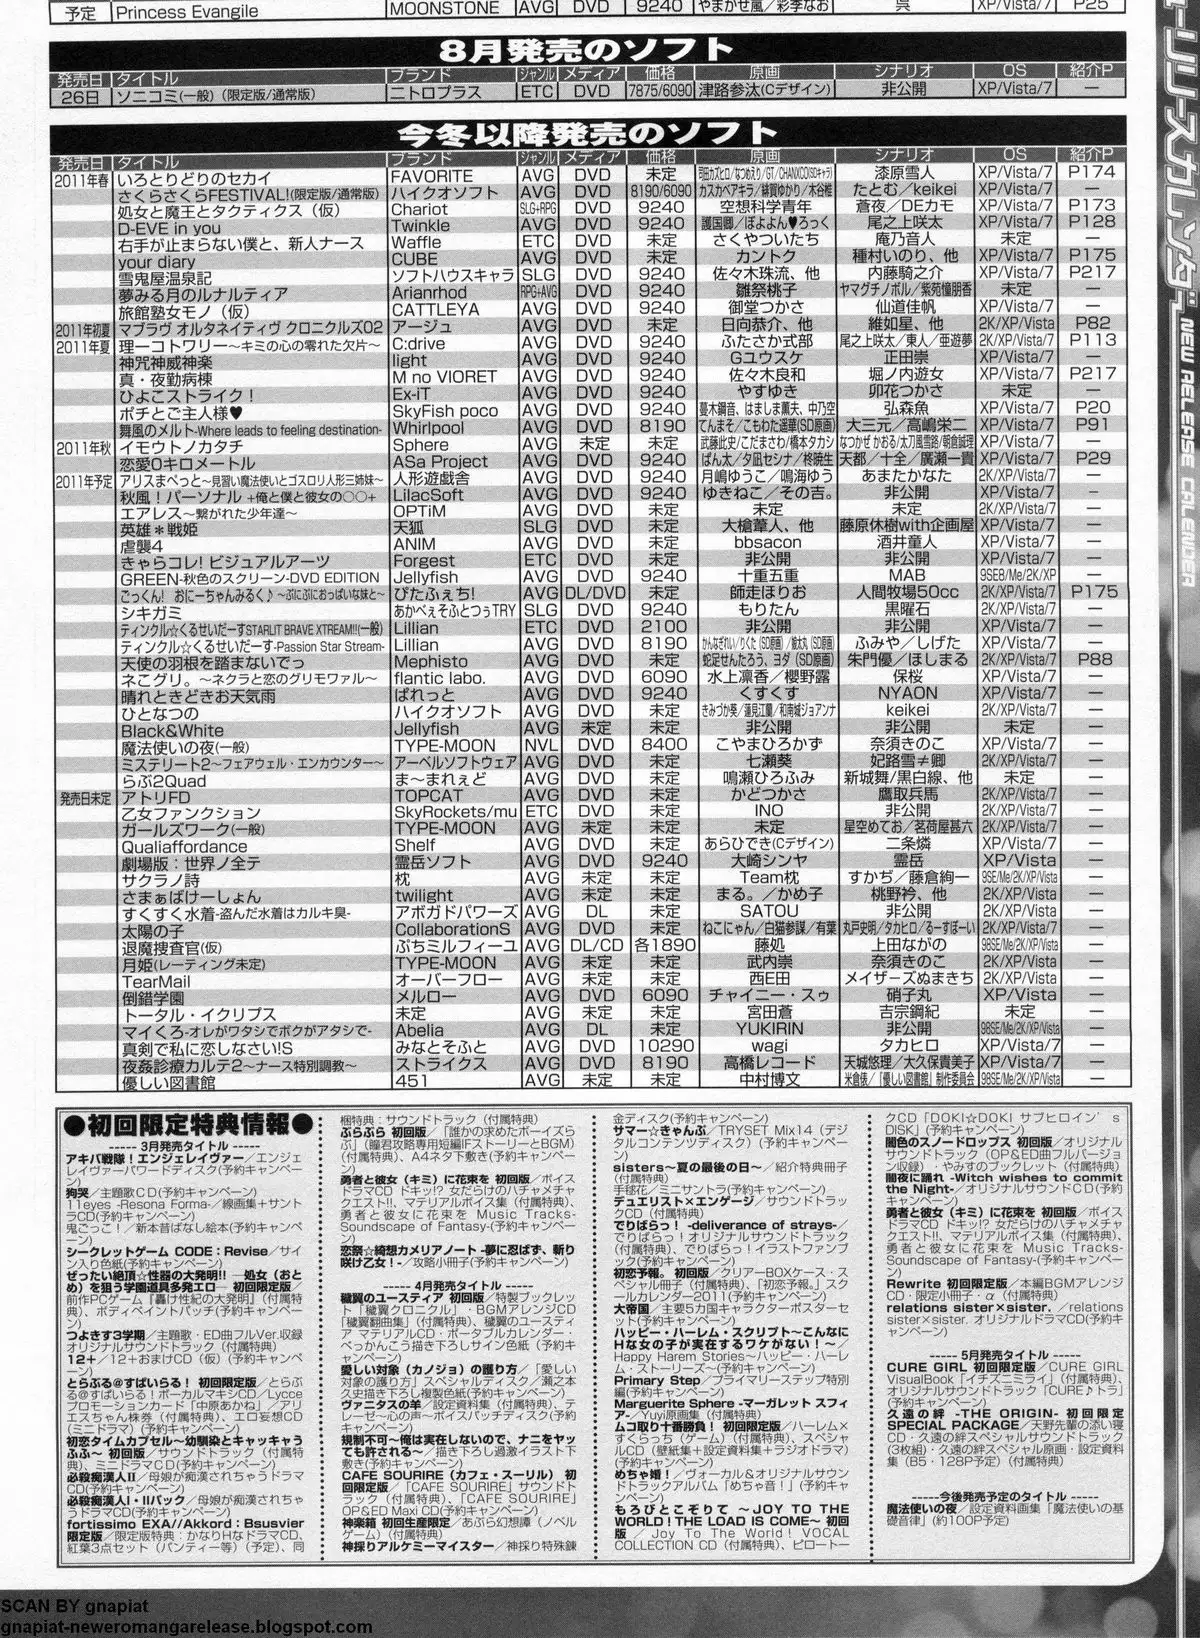 予定 Princess Evangile MOONSTONE AVG DVD 9240 やまかぜ嵐／彩季なお 呉 XP/Vista/7 P25
8月発売のソフト
発売日 タイトル ブランド ジャンル メディア 価格 原画 シナリオ OS 紹介P
26日 ソニコミ(一般) (限定版/通常版) ニトロプラス ETC DVD 7875/6090 津路参汰(Cデザイン) 非公開 XP/Vista/7 ―
今冬以降発売のソフト
発売日 タイトル ブランド ジャンル メディア 価格 原画 シナリオ OS 紹介P
2011年春 いろとりどりのセカイ FAVORITE AVG DVD 未定 漆原雪人 XP/Vista/7 P174
さくらさくらFESTIVAL!(限定版/通常版) ハイクオソフト AVG DVD 8190/6090 カスカベアキラ／綾賀ゆかり／木谷椎 たとむ／keikei XP/Vista/7 ―
処女と魔王とタクティクス（仮） Chariot SLG+RPG DVD 9240 空想科学青年 蒼夜／DEカモ XP/Vista/7 P173
D-EVE in you Twinkle AVG DVD 9240 護国卿／ぽよよん♥ろっく 尾之上咲太 XP/Vista/7 P128
右手が止まらない僕と、新人ナース Waffle ETC DVD 未定 さくやついたち 庵乃音人 未定 ―
your diary CUBE AVG DVD 未定 カントク 種村いのり、他 XP/Vista/7 P175
雪鬼屋温泉記 ソフトハウスキャラ SLG DVD 9240 佐々木珠流、他 内藤騎之介 XP/Vista/7 P217
夢みる月のルナルティア Arianrhod RPG+AVG DVD 9240 雛祭桃子 ヤマグチノボル／紫苑憧朋香 未定 ―
旅館塾女モノ（仮） CATTLEYA AVG DVD 9240 御堂つかさ 仙道佳帆 XP/Vista/7 ―
2011年初夏 マブラヴ オルタネイティヴ クロニクルズ02 アージュ AVG DVD 未定 日向恭介、他 維如星、他 2K/XP/Vista P82
2011年夏 理一コトワリー～キミの心の零れた欠片～ C:drive AVG DVD 9240 ふたさか式部 尾之上咲太／東人／亜遊夢 2K/XP/Vista/7 P113
神咒神威神楽 light AVG DVD 9240 Gユウスケ 正田崇 XP/Vista/7 ―
真・夜勤病棟 M no VIORET AVG DVD 9240 佐々木良和 堀ノ内遊女 XP/Vista/7 P217
ひよこストライク！ Ex-iT AVG DVD 9240 やすゆき 卯花つかさ 未定 ―
ポチとご主人様♥ SkyFish poco AVG DVD 9240 蔓木鋼音、はましま薫夫、中乃空 弘森魚 XP/Vista/7 P20
舞風のメルト-Where leads to feeling destination- Whirlpool AVG DVD 8190 てんまそ／こもわた遥華(SD原画) 大三元／高嶋栄二 XP/Vista/7 P91
2011年秋 イモウトノカタチ Sphere AVG 未定 未定 武藤此史／こだまさわ／橋本タカシ なつかぜ かおる／太刀風雪路／朝倉誠理 XP/Vista/7 ―
恋愛0キロメートル ASa Project AVG DVD 8190 ぱん太／夕凪セシナ／柊暁生 天都／十全／廣瀬一貴 XP/Vista/7 P29
2011年予定 アリスまぺっと～見習い魔法使いとゴスロリ人形三姉妹～ 人形遊戯舎 AVG DVD 9240 月嶋ゆうこ／鳴海ゆう あまたかなた 2K/XP/Vista/7 ―
秋風！パーソナル +俺と僕と彼女の○○+ LilacSoft AVG DVD 9240 ゆきねこ／その吉。 非公開 XP/Vista/7 ―
エアレス～繋がれた少年達～ OPTiM AVG DVD 未定 未定 未定 2K/XP/Vista/7 ―
英雄＊戦姫 天狐 SLG DVD 未定 大槍葦人、他 藤原休樹with企画屋 XP/Vista/7 ―
虐襲4 ANIM AVG DVD 9240 bbsacon 酒井童人 XP/Vista/7 ―
きゃらコレ! ビジュアルアーツ Forgest ETC DVD 未定 非公開 非公開 XP/Vista/7 ―
GREEN-秋色のスクリーン-DVD EDITION Jellyfish AVG DVD 9240 十重五重 MAB 9SE8/Me/2K/XP ―
ごっくん! おにーちゃんみるく♪～ぷにぷにおっぱいな妹と～ ぴたふぇち! AVG DL/DVD 未定 師走ほりお 人間牧場50cc 2K/XP/Vista/7 P175
シキガミ あかべぇそふとつぅTRY SLG DVD 9240 もりたん 黒曜石 2K/XP/Vista/7 ―
ティンクル☆くるせいだーすSTARLIT BRAVE XTREAM!!(一般) Lillian ETC DVD 2100 非公開 非公開 XP/Vista/7 ―
ティンクル☆くるせいだーす-Passion Star Stream- Lillian AVG DVD 8190 ふみや／しげた XP/Vista/7 ―
天使の羽根を踏まないでっ Mephisto AVG DVD 未定 蛇足せんたろう、ヨダ（SD原画） 朱門優／ほしまる 2K/XP/Vista/7 P88
ネこグリ。～ネクラと恋のグリモワァル～ flantic labo. AVG DVD 6090 水上凛香／櫻野露 保桜 XP/Vista/7 ―
晴れときどきお天気雨 ぱれっと AVG DVD 9240 くすくす NYAON XP/Vista/7 ―
ひとなつの ハイクオソフト AVG DVD 未定 きみづか葵／蓮見江蘭／和南城ジョアンナ keikei 2K/XP/Vista/7 ―
Black&White Jellyfish AVG 未定 未定 非公開 非公開 未定 ―
魔法使いの夜(一般) TYPE-MOON NVL DVD 8400 こやまひろかず 奈須きのこ XP/Vista/7 ―
ミステリート2～フェアウェル・エンカウンター～ アーベルソフトウェア AVG DVD 未定 七瀬葵 妃路雪≠卿 2K/XP/Vista/7 ―
らぶ2Quad ま～まれぇど AVG DVD 未定 鳴瀬ひろふみ 新城舞/黒白線、他 未定 ―
発売日未定 アトリFD TOPCAT AVG DVD 未定 かどつかさ 鷹取兵馬 2K/XP/Vista/7 ―
乙女ファンクション SkyRockets/mu ETC DVD 未定 INO 非公開 2K/XP/Vista/7 ―
ガールズワーク(一般) TYPE-MOON AVG 未定 未定 未定 星空めてお／茗荷屋甚六 2K/XP/Vista/7 ―
Qualiaffordance Shelf AVG DVD 未定 あらひでき(Cデザイン) 二条燐 XP/Vista/7 ―
劇場版：世界ノ全テ 霊岳ソフト AVG DVD 9240 大崎シンヤ 霊岳 XP/Vista ―
サクラノ詩 枕 AVG DVD 未定 Team枕 すかぢ／藤倉絢一 9SE/Me/2K/XP/Vista ―
さまぁばけーしょん twilight AVG DVD 未定 まる。／かめ子 桃野衿、他 2K/XP/Vista ―
すくすく水着-盗んだ水着はカルキ臭- アボガドパワーズ AVG DL 未定 SATOU 非公開 2K/XP/Vista ―
太陽の子 CollaborationS AVG DVD 未定 ねこにゃん／白猫参謀／有葉 丸戸史明／タカヒロ／るーすぼーい 2K/XP/Vista ―
退魔捜査官(仮) ぷちミルフィーユ AVG DL/CD 各1890 藤処 上田ながの 98SE/Me/2K/XP/Vista ―
月姫(レーティング未定) TYPE-MOON AVG 未定 未定 武内崇 奈須きのこ 2K/XP/Vista ―
TearMail オーバーフロー AVG 未定 未定 西E田 メイザーズぬまきち 2K/XP/Vista ―
倒錯学園 メルロー AVG DVD 6090 チャイニー・スゥ 硝子丸 XP/Vista ―
トータル・イクリプス 未定 AVG 未定 未定 宮田蒼 吉宗鋼紀 未定 ―
マイくろ-オレがワタシでボクがアタシで- Abelia AVG DL 未定 YUKIRIN 非公開 98SE/Me/2K/XP/Vista ―
真剣で私に恋しなさい!S みなとそふと AVG DVD 10290 wagi タカヒロ XP/Vista/7 ―
夜姦診療カルテ2～ナース特別調教～ ストライクス AVG DVD 8190 高橋レコード 天城悠理／大久保貴美子 XP/Vista/7 ―
優しい図書館 451 AVG 未定 未定 中村博文 米倉俵／『優しい図書館』制作委員会 98SE/Me/2K/XP/Vista ―
リリースカレンダー NEW RELEASE CALENDER
●初回限定特典情報●
----- 3月発売タイトル -----
アキバ戦隊！エンジェレイヴァー／エンジェ
レイヴァーパワードディスク(予約キャンペー
ン)
狗哭／主題歌CD(予約キャンペーン)
11eyes -Resona Forma-／線画集＋サント
ラCD(予約キャンペーン)
鬼ごっこ！／新本昔ばなし絵本(予約キャンペ
ーン)
シークレットゲーム CODE：Revise／サイ
ン入り色紙(予約キャンペーン)
ぜったい絶頂☆性器の大発明!! ―処女（おと
め）を狙う学園道具多発エロ― 初回限定版／
前作PCゲーム「轟け性紀の大発明」（付属特
典）、ボディペイントパッチ(予約キャンペー
ン)
つよきす3学期／主題歌・ED曲フルVer.収録
オリジナルサウンドトラック（付属特典）
12+／12+おまけCD（仮）(予約キャンペー
ン)
とらぶる@すぱいらる！ 初回限定版／とらぶ
る@すぱいらる！ボーカルマキシCD／Lycce
プロモーションカード「中原あかね」／アリ
エスちゃん株券（付属特典）、エロ妄想CD
(ミニドラマ)（予約キャンペーン)
初恋タイムカプセル～幼馴染とキャッキャう
ふふ～ 初回版／サウンドトラック（付属特
典）、ミニドラマCD(予約キャンペーン)
必殺痴漢人II／母娘が痴漢されちゃうドラマ
CD(予約キャンペーン)
必殺痴漢人I・IIパック／母娘が痴漢されちゃ
うドラマCD(予約キャンペーン)
fortissimo EXA//Akkord：Bsusvier
限定版／限定版特典：かなりHなドラマCD、
紅葉3点セット（パンティー等）（予定）、同
梱特典：サウンドトラック（付属特典）
ぶらぶら 初回版／「誰かの求めたボーイズら
ぶ」(瞳君攻略専用短編IFストーリーとBGM)
（付属特典）、A4ネタ下敷き(予約キャンペー
ン)
勇者と彼女（キミ）に花束を 初回版／ボイス
ドラマCD ドキッ!? 女だらけのハチャメチャ
クエスト!!、マテリアルボイス集（付属特典）、
勇者と彼女に花束を Music Tracks-
Soundscape of Fantasy-(予約キャンペー
ン)
恋祭☆綺想カメリアノート -夢に忍ばず、斬り
咲け乙女！-／攻略小冊子（予約キャンペーン）
----- 4月発売タイトル -----
穢翼のユースティア 初回版／特製ブックレッ
ト「穢翼クロニクル」・BGMアレンジCD
「穢翼翻曲集」（付属特典）、穢翼のユーステ
ィア マテリアルCD・ポータブルカレンダー・
べっかんこう描き下ろしサイン色紙（予約キ
ャンペーン）
愛しい対象（カノジョ）の護り方／「愛しい
対象の護り方」スペシャルディスク／瀬之本
久史描き下ろし複製色紙(予約キャンペーン)
ヴァニタスの羊／設定資料集（付属特典）、テ
レーゼ～心の声～ボイスパッチディスク(予約
キャンペーン)
規制不可～俺は実在しないので、ナニをヤッ
ても許される～／描き下ろし過激イラスト下
敷き(予約キャンペーン)
CAFE SOURIRE（カフェ・スーリル） 初
回限定版／「CAFE SOURIRE」サウンドト
ラック（付属特典）、「CAFE SOURIRE」
OP&ED Maxi CD(予約キャンペーン)
神楽箱 初回生産限定／あぷら幻想譚（ノベル
ゲーム）（付属特典）
神採りアルケミーマイスター／神採り特殊錬
金ディスク(予約キャンペーン)
サマー☆きゃんぷ／TRYSET Mix14（デジ
タルコンテンツディスク）（予約キャンペー
ン）
sisters～夏の最後の日～／紹介特典冊子
(付属特典)
手毬花／ミニサントラ(予約キャンペーン)
デュエリスト×エンゲージ／サウンドトラッ
クCD（付属特典）
でりばらっ！ -deliverance of strays-／
でりばらっ！オリジナルサウンドトラック
（付属特典）、でりばらっ！イラストファンブ
ック(予約キャンペーン)
初恋予報。初回版／クリアーBOXケース・ス
ペシャル冊子（付属特典）、「初恋予報。」スク
ールカレンダー2011(予約キャンペーン)
大帝国／主要5カ国キャラクターポスターセ
ット(予約キャンペーン)
ハッピー・ハーレム・スクリプト～こんなに
Hな女の子が実在するワケがない！～／
Happy Harem Stories～ハッピー・ハーレ
ム・ストーリーズ～(予約キャンペーン)
Primary Step／プライマリーステップ特別
編(予約キャンペーン)
Marguerite Sphere -マーガレット スフィ
ア-／Yuyi原画集（付属特典）
ムコ取り十番勝負！ 初回限定版／ハーレム×
すくらっち（ゲーム）（付属特典）、スペシャ
ルCD（壁紙集＋設定資料集＋ラジオドラマ）
（予約キャンペーン）
めちゃ婚！／ヴォーカル＆オリジナルサウン
ドトラックアルバム「めちゃ音！」(予約キャ
ンペーン)
もろびとこぞりて ～JOY TO THE
WORLD！THE LOAD IS COME～ 初回
版／Joy To The World！VOCAL
COLLECTION CD（付属特典）、ピロートー
クCD「DOKI☆DOKI サブヒロイン's
DISK」(予約キャンペーン)
闇色のスノードロップス 初回版／オリジナル
サウンドトラック（OP&ED曲フルバージョ
ン収録）・やみすのブックレット（付属特典）
闇夜に踊れ -Witch wishes to commit
the Night-／オリジナルサウンドCD(予約キ
ャンペーン)
勇者と彼女（キミ）に花束を 初回版／ボイス
ドラマCD ドキッ!? 女だらけのハチャメチャ
クエスト!!、マテリアルボイス集（付属特典）、
勇者と彼女に花束を Music Tracks-
Soundscape of Fantasy-(予約キャンペー
ン)
Rewrite 初回限定版／本編BGMアレンジ
CD・限定小冊子・α（付属特典）
relations sister×sister.／relations
sister×sister. オリジナルドラマCD(予約キ
ャンペーン)
----- 5月発売タイトル -----
CURE GIRL 初回限定版／CURE GIRL
VisualBook「イチズミニライ」（付属特典）、
オリジナルサウンドトラック「CURE♪トラ」
(予約キャンペーン)
久遠の絆 -THE ORIGIN- 初回限定
SPECIAL PACKAGE／天野先輩の添い寝
CD・久遠の絆スペシャルサウンドトラック
(3枚組)・久遠の絆スペシャル原画・設定資料
集（B5・128P予定）（付属特典）
-----今後発売予定のタイトル -----
魔法使いの夜／設定資料画集「魔法使いの基
礎音律」(約100P予定)
SCAN BY gnapiat
gnapiat-neweromangarelease.blogspot.com